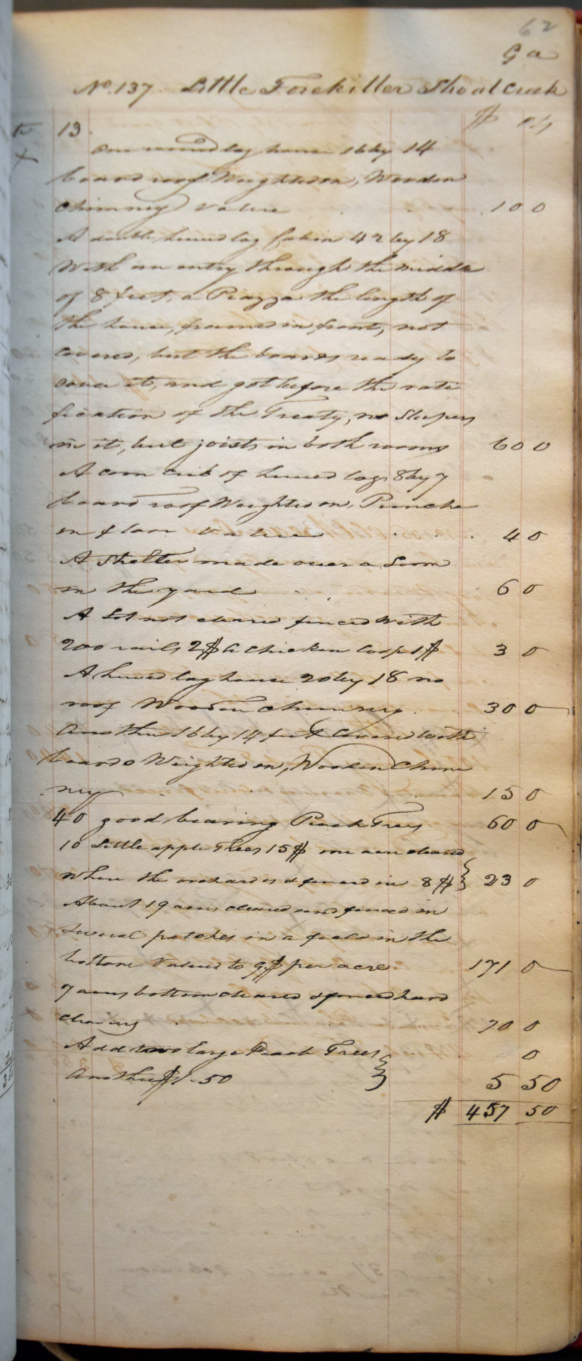 62
Ga
No. 137 Little Forekiller Shoal Creek
$ cts
13.
One round log house 16 by 14
board roof Weighted on, Wooden
Chimney Value 10 0
A double hewed log Cabin 42 by 18
With an entry through the middle
of 8 feet, a Piazza the length of
the house, framed in front, not
covered, but the boards ready to
cover it, and got before the rati
fication of the Treaty, no Sleepers
in it, but joists in both rooms 60 0
A corn crib of hewed logs 8 by 7
board roof Weighted on, Punche
on floor 4 0
A Shelter made over a Loom
in the yard 6 0
A Lot not cleared fenced with
200 rails 2$ A Chicken Coop 1$ 3 0
A hewed log house 20 by 18 no
roof Wooden Chimney 30 0
Another 16 by 14 feet Covered with
boards Weighted on, Wooden Chim
ney 15 0
40 good bearing Peach Trees 60 0
10 Little apple Trees 15$ one acre cleared
where the orchard is & fenced in 8$ } 23 0
About 19 acres cleared and fenced in
Several patches in a field in the
bottom Valued to 9$ per acre 171 0
7 acres bottom cleared & fenced hard
clearing 70 0
Add two large Peach Trees 0
Another $1.50 } 5 50
$ 457 50